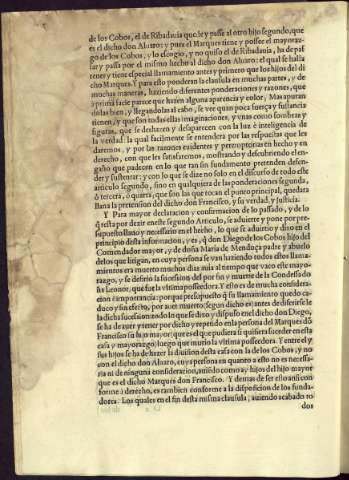 de los Cobos, el de Ribadauia que le y passe al otro hijo segundo, que
es el dicho don Aluaro: y pues el Marques tiene y posee el mayoraz-
go de los Cobos, y lo escogio, y no quiso el de Ribadauia, ha de pas-
sar y passa por el mismo hecho al dicho don Aluaro: el qual se halla
tener y tiene especial llamamiento antes y primero que los hijos del di
cho Marques. Y para esto ponderan la clausula en muchas partes, y de
muchas maneras, haziendo diferentes ponderaciones y razones, que
a prima facie parece que hazen alguna aparencia y color, Mas apuran
dolas bien, y llegandolas al cabo, se vee quan poca fuerça y sustancia
tienen, y que son todas ellas imaginaciones, y vnas como sombras y
figuras, que se deshazen y desaparecen con la luz è inteligencia de
la verdad: la qual facilmente se entendera por las respuestas que les
daremos, y por las razones euidentes y perentorias en hecho y en
derecho, con que les satisfaremos, mostrando y descubriendo el en-
gaño que padecen en lo que tan sin fundamento pretenden defen-
der y sustentar: y con lo que se dize no solo en el discurso de todo este
articulo segundo, sino en qualquiera de las ponderaciones segunda,
ò tercera, ò quarta, que son las que tocan el punto principal, quedara
llana la pretension del dicho don Francisco, y su verdad, y justicia.
Y Para mayor declaracion y confirmacion de lo passado, y de lo
q̃ resta por dezir en este segundo Articulo, se aduierte y pone por pre-
supuesto llano y necessario en el hecho, lo que se aduirtio y dixo en el
principio desta informacion, y es, q̃ don Diego de los Cobos hijo del
Comendador mayor, y de doña Maria de Mendoça padre y abuelo
de los que litigan, en cuya persona se van haziendo todos estos llama-
mientos era muerto muchos dias auia al tempo que vaco este mayo-
razgo, y se defirio la sucession del por fin y muerte de la Condessa do
ña Leonor, que fue la vltima posseedora. Y esto es de mucha considera-
cion è importancia: porque presupuesto q̃ su llamamiento quedo ca-
duco y sin efeto, por auer muerto segun dicho es antes de diferirsele
la dicha sucession todo lo que se dize y dispuso en el dicho don Diego,
se ha de auer y tener por dicho y repetido en la persona del Marques dõ
Francisco su hijo mayor, que es el que pudiera si quisiera suceder en esta
casa y mayorazgo, luego que murio la vltima posseedora. Y entre el y
sus hijos se ha de hazer la diuision desta casa con la de los Cobos, y no
con el dicho don Aluaro, cuya persona en quanto a esto no es necessa-
ria ni de ninguna consideracion, auiendo como ay hijos del hijo mayor
que es el dicho Marques don Francisco. Y demas de ser esto assi con
forme a derecho, es tambien conforme a la disposicion de los funda-
dores: Los quales en el fin desta misma clausula, auiendo acabado to
dos